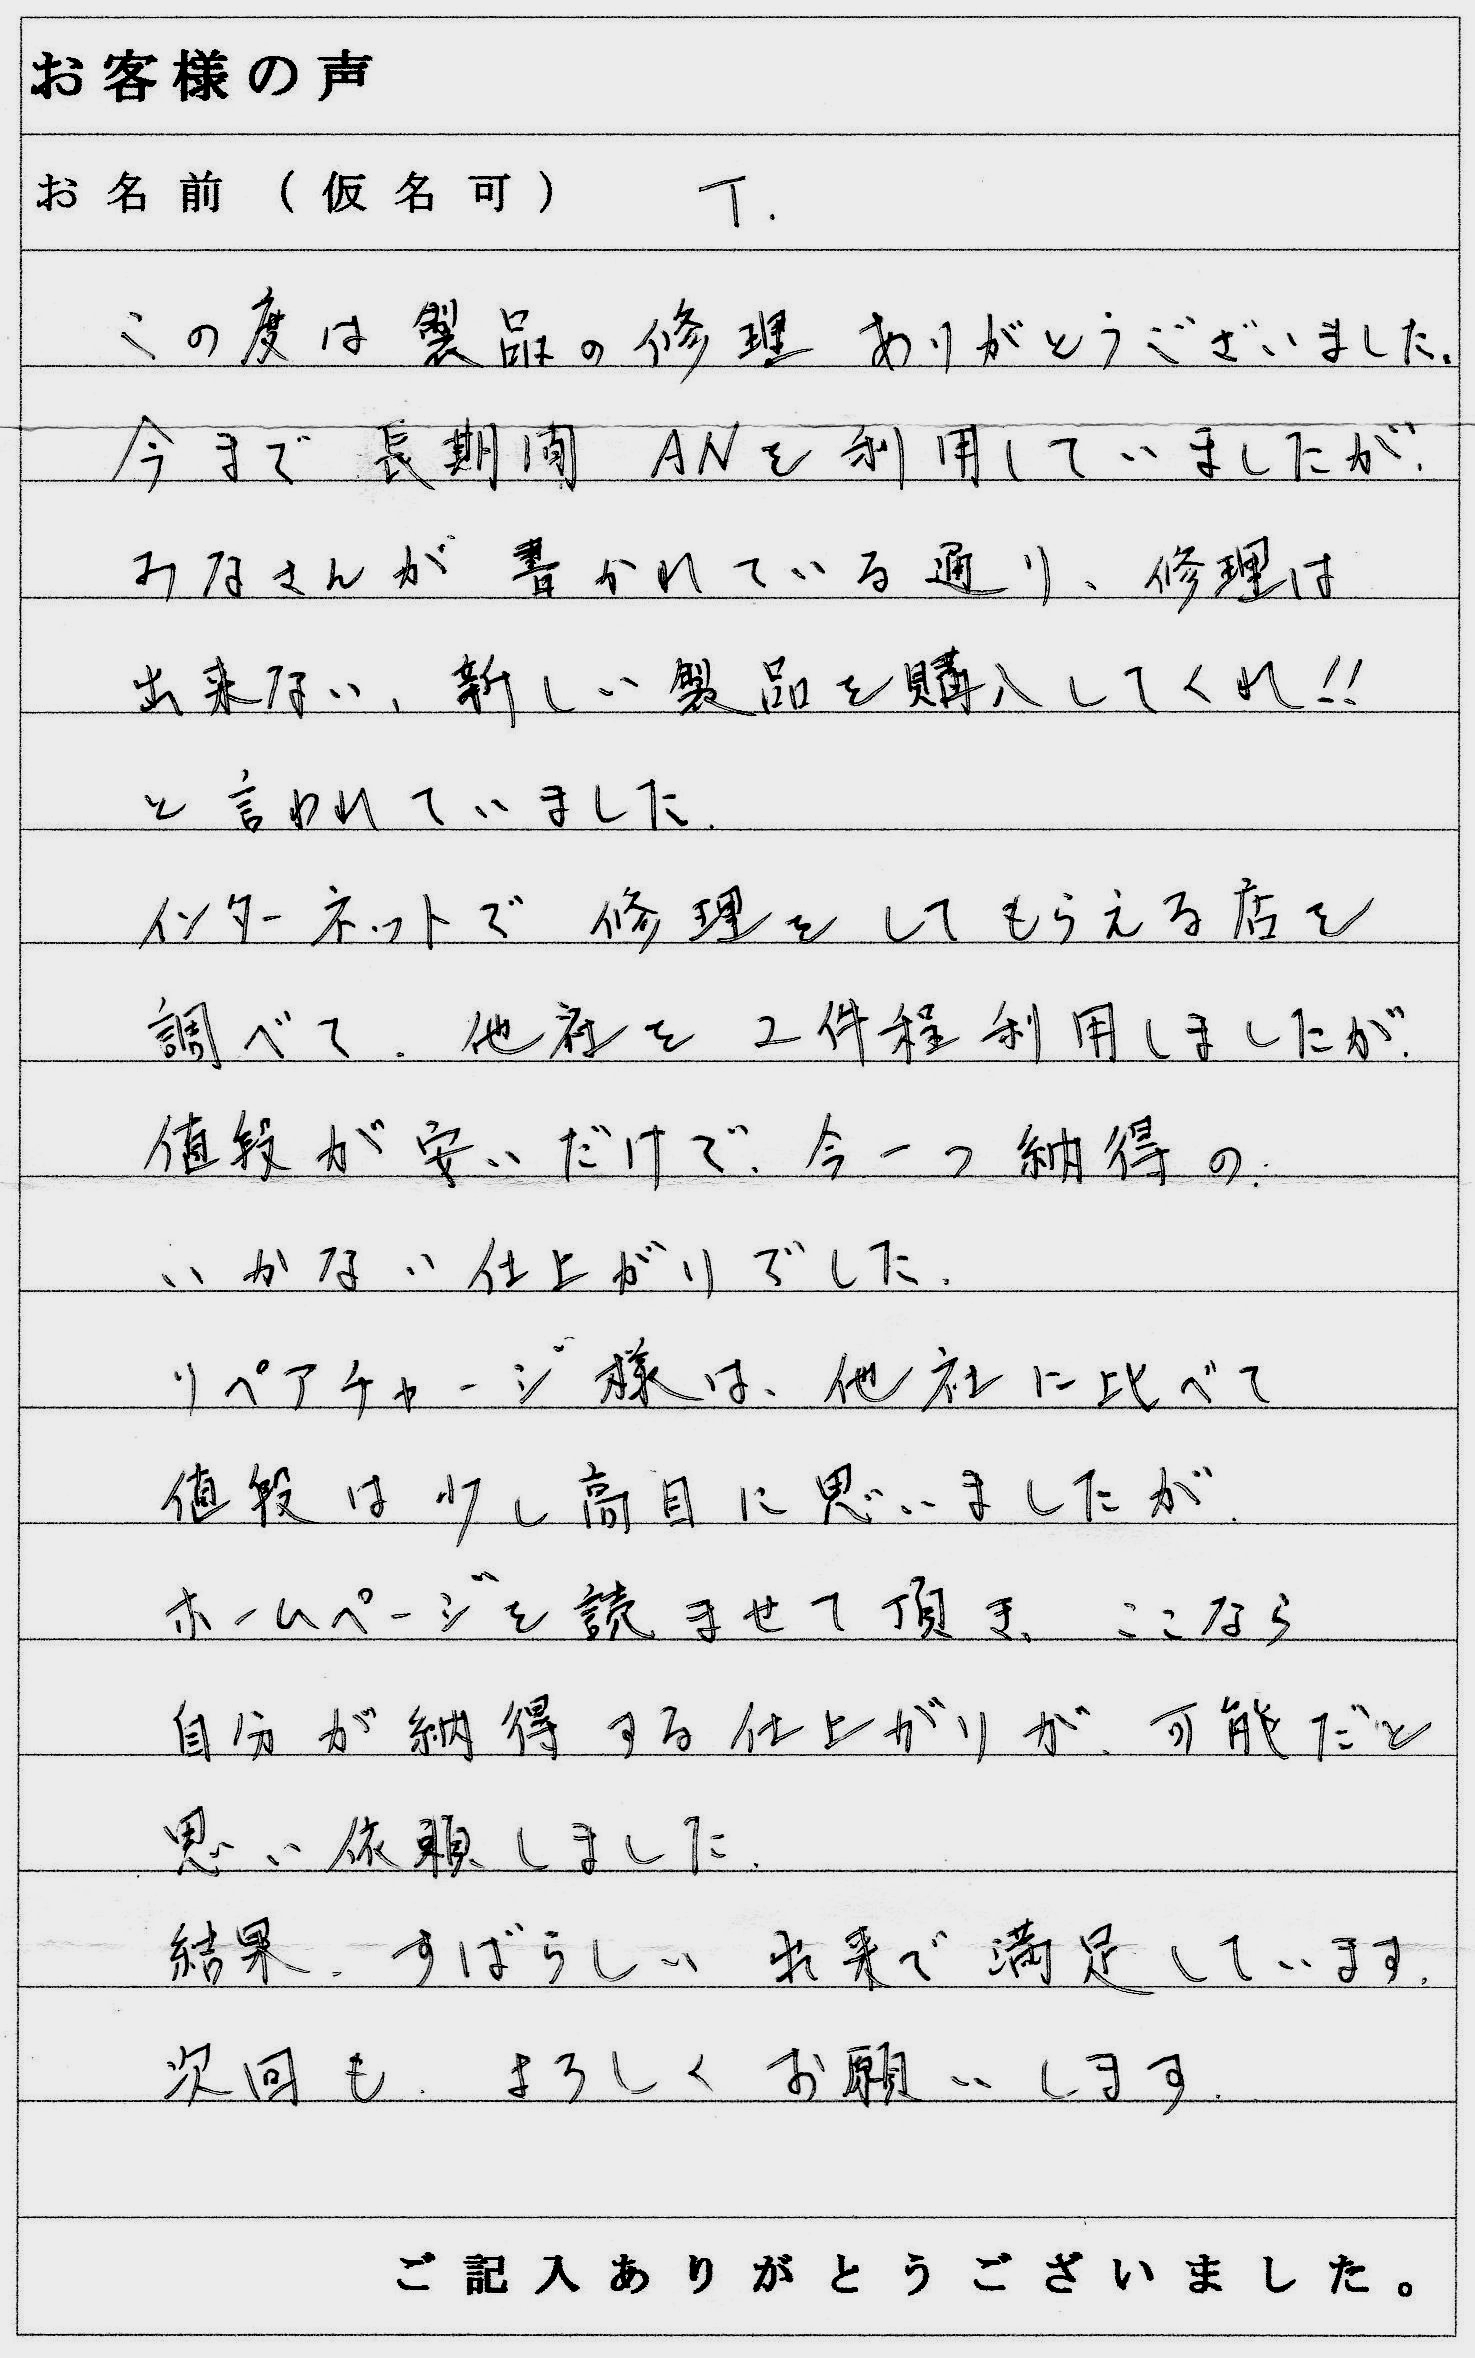 お客様の声
お名前（仮名可） T.
この度は製品の修理 ありがとうございました。
今まで 長期間 ANを利用していましたが、
みなさんが書かれている通り、修理は
出来ない、新しい製品を購入してくれ!!
と言われていました。
インターネットで 修理をしてもらえる店を
調べて、他社を 2件程利用しましたが、
値段が安いだけで、今一つ納得の、
いかない仕上がりでした。
リペアチャージ様は、他社に比べて
値段は少し高目に思いましたが、
ホームページを読ませて頂き、ここなら
自分が納得する仕上がりが、可能だと
思い依頼しました。
結果、すばらしい 出来で満足しています。
次回も、よろしく お願いします。
ご記入ありがとうございました。